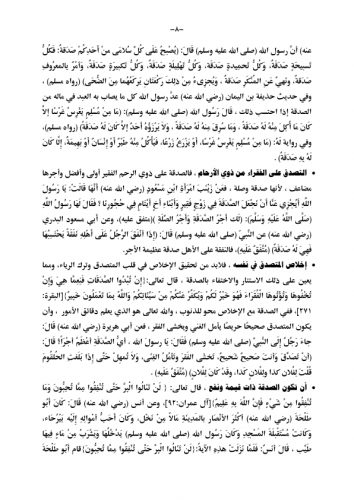 -٨-
عنه) أنّ رسول الله (صلى الله عليه وسلم) قال: (يُصْبِحُ عَلَى كُلِّ سُلَامَى مِنْ أَحَدِكُمْ صَدَقَةٌ: فَكُلُّ
تَسبِيحَةٍ صَدَقَةٌ، وَكُلُّ تَحمِيدَةٍ صَدَقَةٌ، وَكُلُّ تَهْلِيلَةٍ صَدَقَةٌ، وَكُلُّ تَكْبِيرَةٍ صَدَقَةٌ، وَأمْرٌ بالمعْرُوفِ
صَدَقَةٌ، ونَهيٌ عَنِ المُنْكَرِ صَدَقَةٌ ، وَيُجزِىءُ مِنْ ذلِكَ رَكْعَتَانِ يَركَعُهُما مِنَ الضُّحَى) (رواه مسلم) ،
وفي حديث حذيفة بن اليمان (رضي الله عنه) عدَّ رسول الله كل ما يصاب به العبد في ماله من
الصدقة إذا احتسب ذلك ، قال رسول الله (صلى الله عليه وسلم): (مَا مِنْ مُسلِمٍ يَغْرِسُ غَرْسًا إلَّا
كَانَ مَا أُكِلَ مِنْهُ لَهُ صَدَقَةً، وَمَا سُرِقَ مِنهُ لَهُ صَدَقَةً ، وَلَا يَرْزَؤُهُ أَحَدٌ إلَّا كَانَ لَهُ صَدَقَةً) (رواه مسلم)،
وفي رواية له: (مَا مِنْ مُسْلِمٍ يَغْرِسُ غَرْسًا، أَوْ يَزرَعُ زَرعًا، فَيَأكُلُ مِنْهُ طَيْرٌ أَوْ إنْسَانٌ أَوْ بَهِيمَةٌ، إلَّا كَانَ
لَهُ بِهِ صَدَقَةٌ) .
• التصدق على الفقراء من ذوي الأرحام ، فالصدقة على ذوي الرحم الفقير أولى وأفضل وأجرها
مضاعف ، لأنها صدقة وصلة ، فعن زَيْنَبَ امْرَأَةِ ابْنِ مَسْعُودٍ (رضي الله عنه) أَنَّهَا قَالَتْ: يَا رَسُولَ
اللَّهِ أَيُجْزِئُ عَنَّا أَنْ نَجْعَلَ الصَّدَقَةَ فِي زَوْجٍ فَقِيرٍ وَأَبْنَاءِ أَخٍ أَيْتَامٍ فِي حُجُورِنَا ؟ فَقَالَ لَهَا رَسُولُ اللَّهِ
(صَلَّى اللَّهُ عَلَيْهِ وَسَلَّمَ): (لَكِ أَجْرُ الصَّدَقَةِ وَأَجْرُ الصِّلَةِ )(متفق عليه)، وعن أبي مسعود البدري
(رضي الله عنه) عن النبي (صلى الله عليه وسلم) قال: ((إِذَا أَنْفَقَ الرَّجُلُ عَلَى أَهْلِهِ نَفَقَةً يَحْتَسِبُهَا
فَهِيَ لَهُ صَدَقَةٌ) (مُتَّفَقٌ عَلَيهِ)، فالنفقة على الأهل صدقة عظيمة الأجر.
• إخلاص المتصدق في نفسه ، فلابد من تحقيق الإخلاص في قلب المتصدق وترك الرياء، ومما
يعين على ذلك الاستتار والاختفاء بالصدقة ، قال تعالى: {إِنْ تُبْدُوا الصَّدَقَاتِ فَنِعِمَّا هِيَ وَإِنْ
تُخْفُوهَا وَتُؤْتُوهَا الْفُقَرَاءَ فَهُوَ خَيْرٌ لَكُمْ وَيُكَفِّرُ عَنْكُمْ مِنْ سَيِّئَاتِكُمْ وَاللَّهُ بِمَا تَعْمَلُونَ خَبِيرٌ}[البقرة:
٢٧١]، ففي الصدقة مع الإخلاص محو للذنوب ، والله تعالى هو الذي يعلم دقائق الأمور ، وأن
يكون المتصدق صحيحًا حريصًا يأمل الغنى ويخشى الفقر ، فعن أبي هريرة (رضي الله عنه) قال:
جاءَ رَجُلٌ إِلَى النَّبيِّ (صلى الله عليه وسلم) فَقَالَ: يَا رسولَ الله ، أَيُّ الصَّدَقَةِ أَعْظَمُ أَجْرًا؟ قَالَ:
(أَنْ تَصَدَّقَ وَأَنتَ صَحيحٌ شَحيحٌ، تَخشَى الفَقرَ وَتَأمُلُ الغِنَى، وَلاَ تُمهِلْ حَتَّى إِذَا بَلَغتِ الحُلقُومَ
قُلْتَ لِفُلان كَذا ولِفُلان كَذا، وقَدْ كَانَ لِفُلانٍ) (مُتَّفَقٌ عَلَيهِ) .
• أن تكون الصدقة ذات قيمة ونفع ، قال تعالى: { لَنْ تَنَالُوا الْبِرَّ حَتَّى تُنْفِقُوا مِمَّا تُحِبُّونَ وَمَا
تُنْفِقُوا مِنْ شَيْءٍ فَإِنَّ اللَّهَ بِهِ عَلِيمٌ}[آل عمران:٩٢]، وعن أنس (رضي الله عنه) قال: كَانَ أَبُو
طَلْحَةَ (رضي الله عنه) أَكْثَرَ الأَنْصَارِ بِالمَدِينَةِ مَالًا مِنْ نَخْلٍ، وَكَانَ أَحَبَّ أَمْوَالِهِ إِلَيْهِ بَيْرُحَاءُ،
وَكَانَتْ مُسْتَقْبِلَةَ المَسْجِدِ وَكَانَ رَسُول الله (صلى الله عليه وسلم) يَدْخُلُهَا وَيَشْرَبُ مِنْ مَاءٍ فِيهَا
طَيِّب ، قَالَ أَنَسٌ: فَلَمَّا نَزَلَتْ هذِهِ الآيةُ:{لَنْ تَنَالُوا الْبِرَّ حَتَّى تُنْفِقُوا مِمَّا تُحِبُّونَ} قام أَبُو طَلْحَةَ